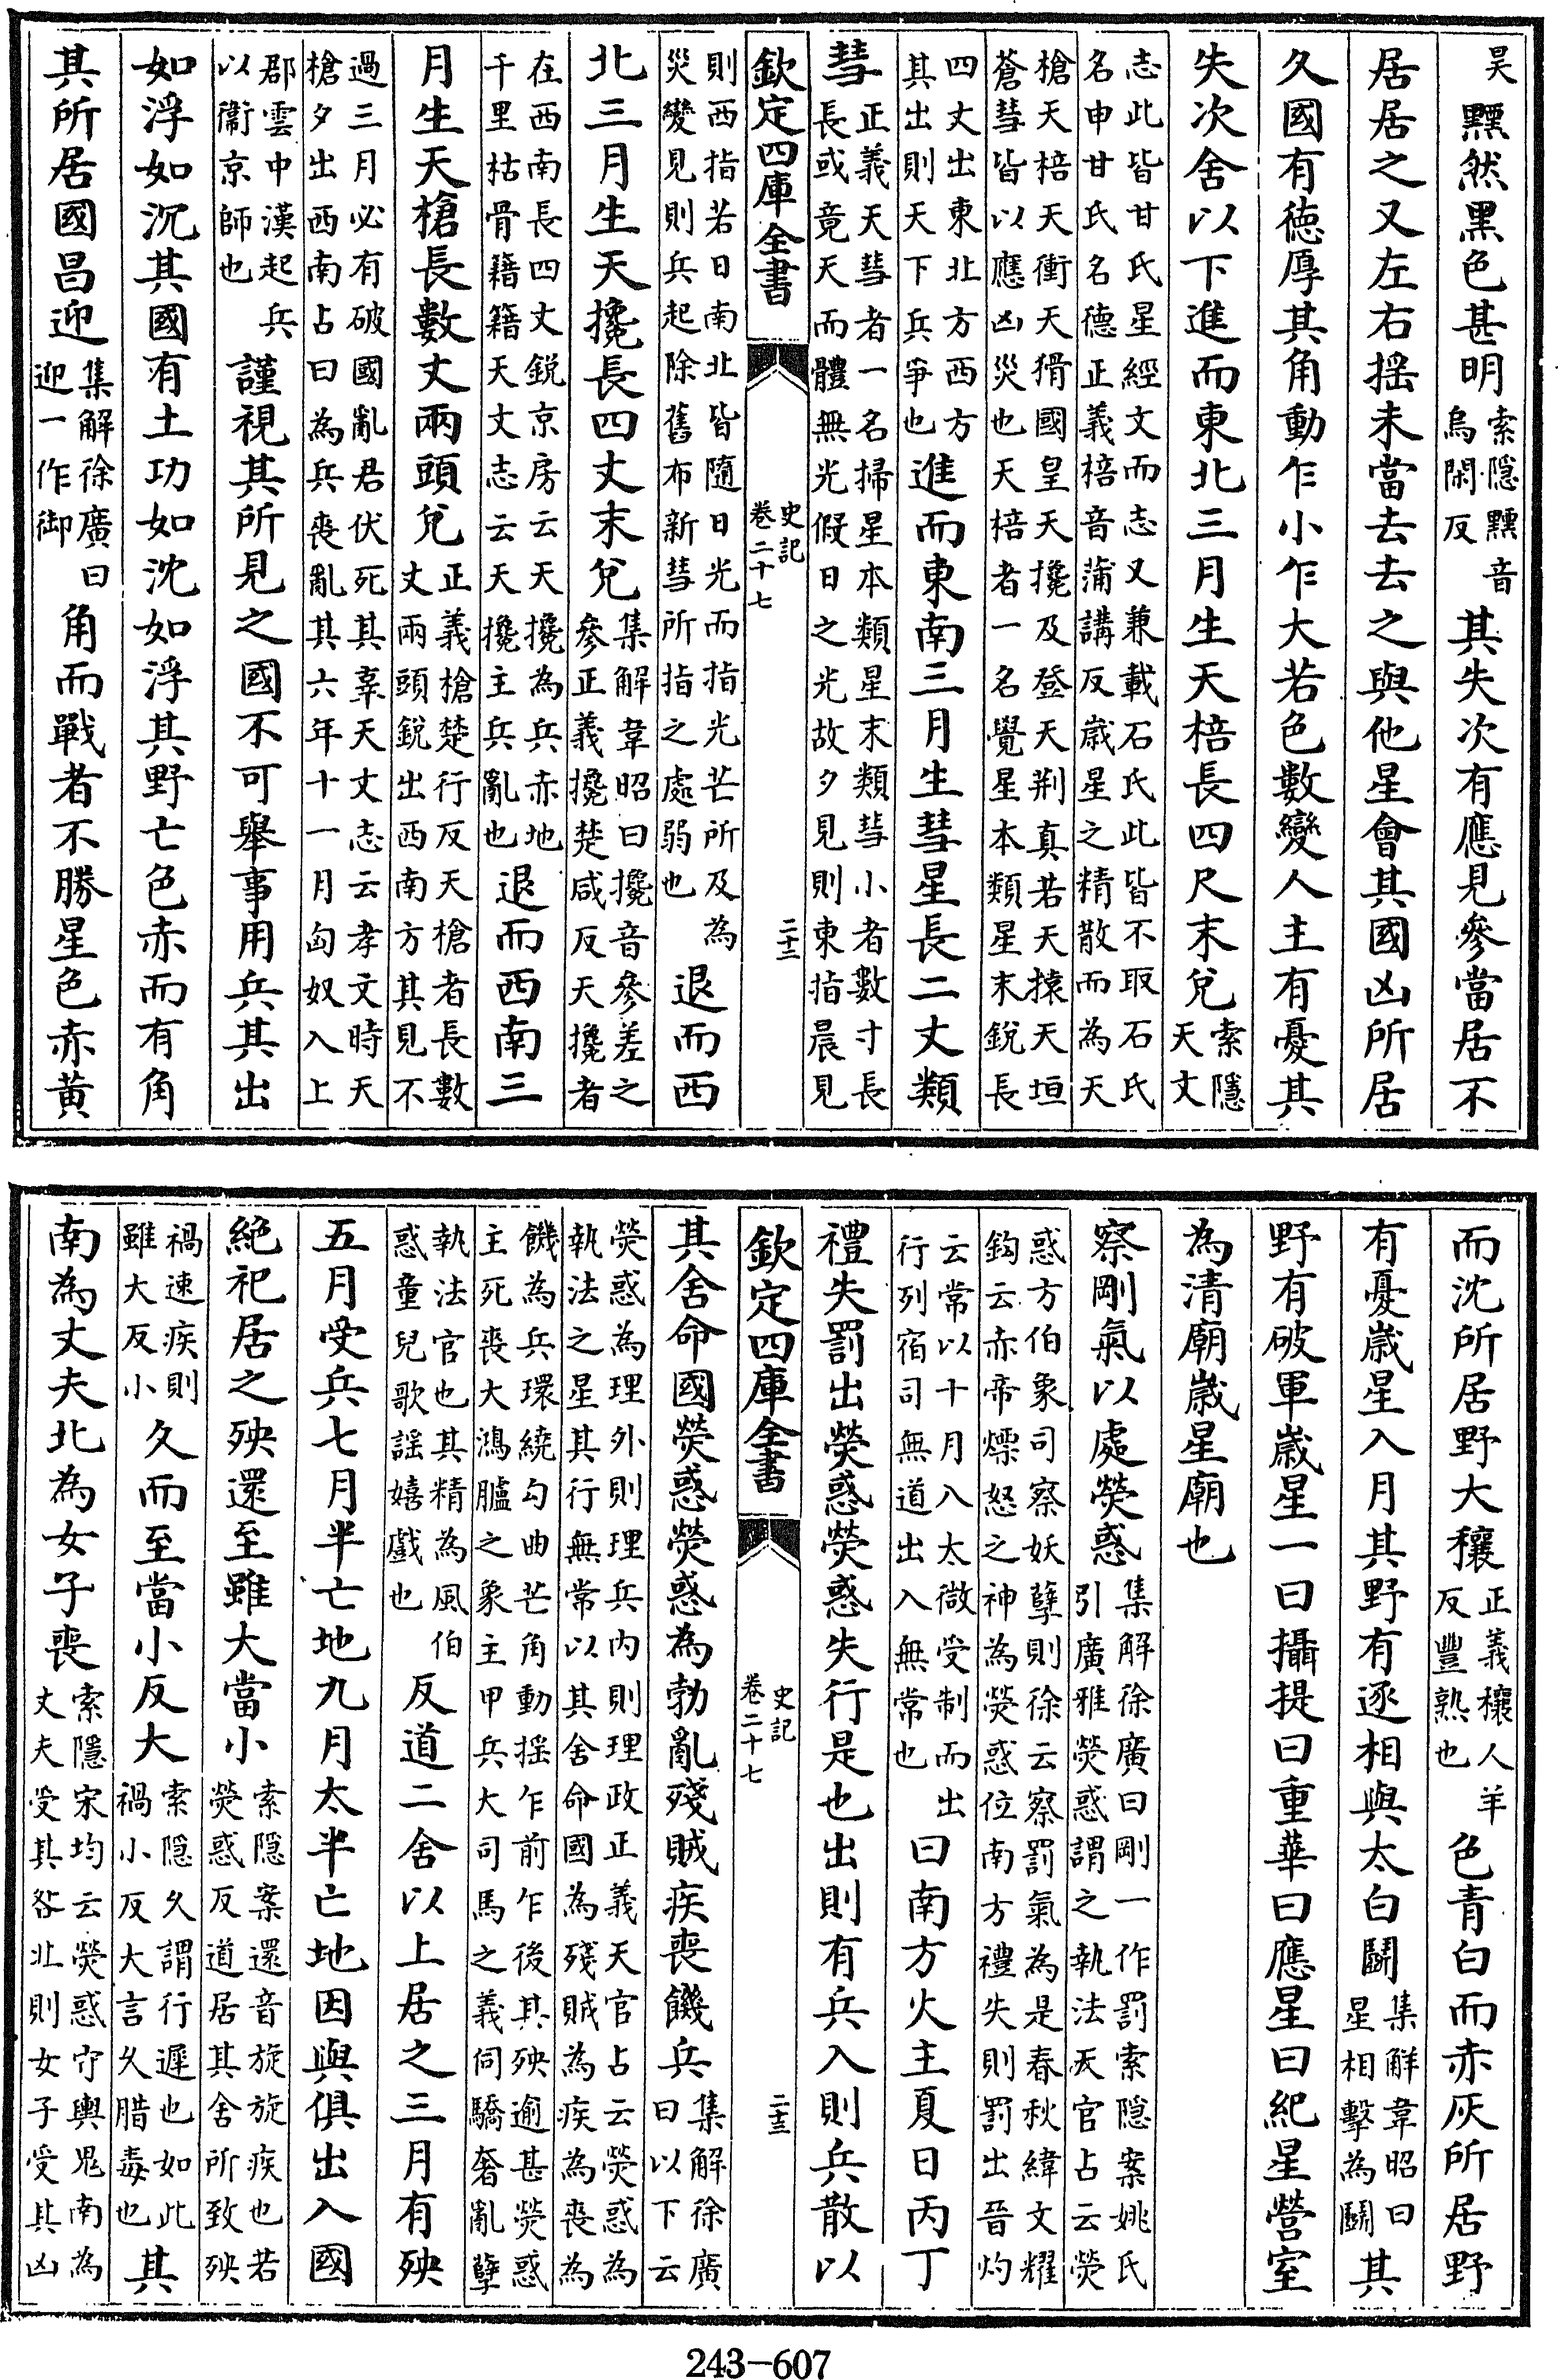 昊黫然黑色甚明
索隱黫音
烏閑反
其失次有應見參當居不
居居之又左右揺未當去去之與他星會其國凶所居
久國有德厚其角動乍小乍大若色數變人主有憂其
失次舍以下進而東北三月生天棓長四尺末兊
索隱
天文
志此皆甘氏星經文而志又兼載石氏此皆不取石氏
名申甘氏名德正義棓音蒲講反歲星之精散而為天
槍天棓天衝天猾國皇天攙及登天荆真若天猿天垣
蒼彗皆以應凶災也天棓者一名覺星本類星末銳長
四丈出東北方西方
其出則天下兵爭也
進而東南三月生彗星長二丈類
彗
正義天彗者一名掃星本類星末類彗小者數寸長
長或竟天而體無光假日之光故夕見則東指晨見
欽定四庫全書
史記
卷二十七
二十三
則西指若日南北皆隨日光而指光芒所及為
災變見則兵起除舊布新彗所指之處弱也
退而西
北三月生天攙長四丈末兊
集解韋昭曰攙音參差之
參正義攙楚咸反天攙者
在西南長四丈銳京房云天攙為兵赤地
千里枯骨籍籍天文志云天攙主兵亂也
退而西南三
月生天槍長數丈兩頭兊
正義槍楚行反天槍者長數
丈兩頭銳出西南方其見不
過三月必有破國亂君伏死其辜天文志云孝文時天
槍夕出西南占曰為兵喪亂其六年十一月匈奴入上
郡雲中漢起兵
以衞京師也
謹視其所見之國不可舉事用兵其出
如浮如沉其國有土功如沈如浮其野亡色赤而有角
其所居國昌迎
集解徐廣曰
迎一作御
角而戰者不勝星色赤黃
而沈所居野大穰
正義穰人羊
反豐熟也
色青白而赤灰所居野
有憂歲星入月其野有逐相與太白鬭
集解韋昭曰
星相擊為鬭
其
野有破軍歲星一曰攝提曰重華曰應星曰紀星營室
為清廟歲星廟也
察剛氣以處熒惑
集解徐廣曰剛一作罰索隱案姚氏
引廣雅熒惑謂之執法天官占云熒
惑方伯象司察妖孽則徐云察罰氣為是春秋緯文耀
鈎云赤帝熛怒之神為熒惑位南方禮失則罰出晉灼
云常以十月入太微受制而出
行列宿司無道出入無常也
曰南方火主夏日丙丁
禮失罰出熒惑熒惑失行是也出則有兵入則兵散以
欽定四庫全書
史記
卷二十七
二十三
其舍命國熒惑熒惑為勃亂殘賊疾喪饑兵
集解徐廣
曰以下云
熒惑為理外則理兵內則理政正義天官占云熒惑為
執法之星其行無常以其舍命國為殘賊為疾為喪為
饑為兵環繞勾曲芒角動揺乍前乍後其殃逾甚熒惑
主死喪大鴻臚之象主甲兵大司馬之義伺驕奢亂孽
執法官也其精為風伯
惑童兒歌謡嬉戲也
反道二舍以上居之三月有殃
五月受兵七月半亡地九月太半亡地因與俱出入國
絶祀居之殃還至雖大當小
索隱案還音旋旋疾也若
熒惑反道居其舍所致殃
禍速疾則
雖大反小
久而至當小反大
索隱久謂行遲也如此
禍小反大言久腊毒也
其
南為丈夫北為女子喪
索隱宋均云熒惑守輿鬼南為
丈夫受其咎北則女子受其凶
243-607